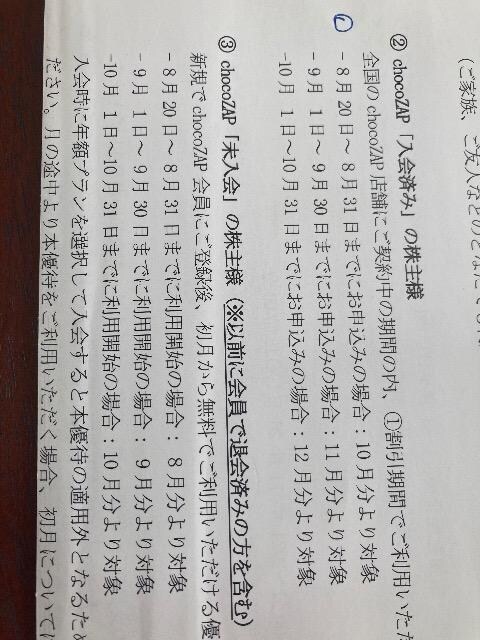 (ご家族、ご友人などのどなたでも
② chocoZAP「入会済み」の株主様
全国の chocoZAP 店舗にご契約中の期間の内、①割引期間でご利用いた
- 8 月 20 日～ 8 月 31 日までにお申込みの場合：10 月分より対象
- 9 月 1 日～ 9 月 30 日までにお申込みの場合：11 月分より対象
-10 月 1 日～10 月 31 日までにお申込みの場合：12 月分より対象
③ chocoZAP「未入会」の株主様（※以前に会員で退会済みの方を含む）
新規で chocoZAP 会員にご登録後、初月から無料でご利用いただける優
- 8 月 20 日～ 8 月 31 日までに利用開始の場合： 8 月分より対象
- 9 月 1 日～ 9 月 30 日までに利用開始の場合： 9 月分より対象
-10 月 1 日～10 月 31 日までに利用開始の場合：10 月分より対象
入会時に年額プランを選択して入会すると本優待の適用外となるため
ださい。月の途中より本優待をご利用いただく場合、初月については